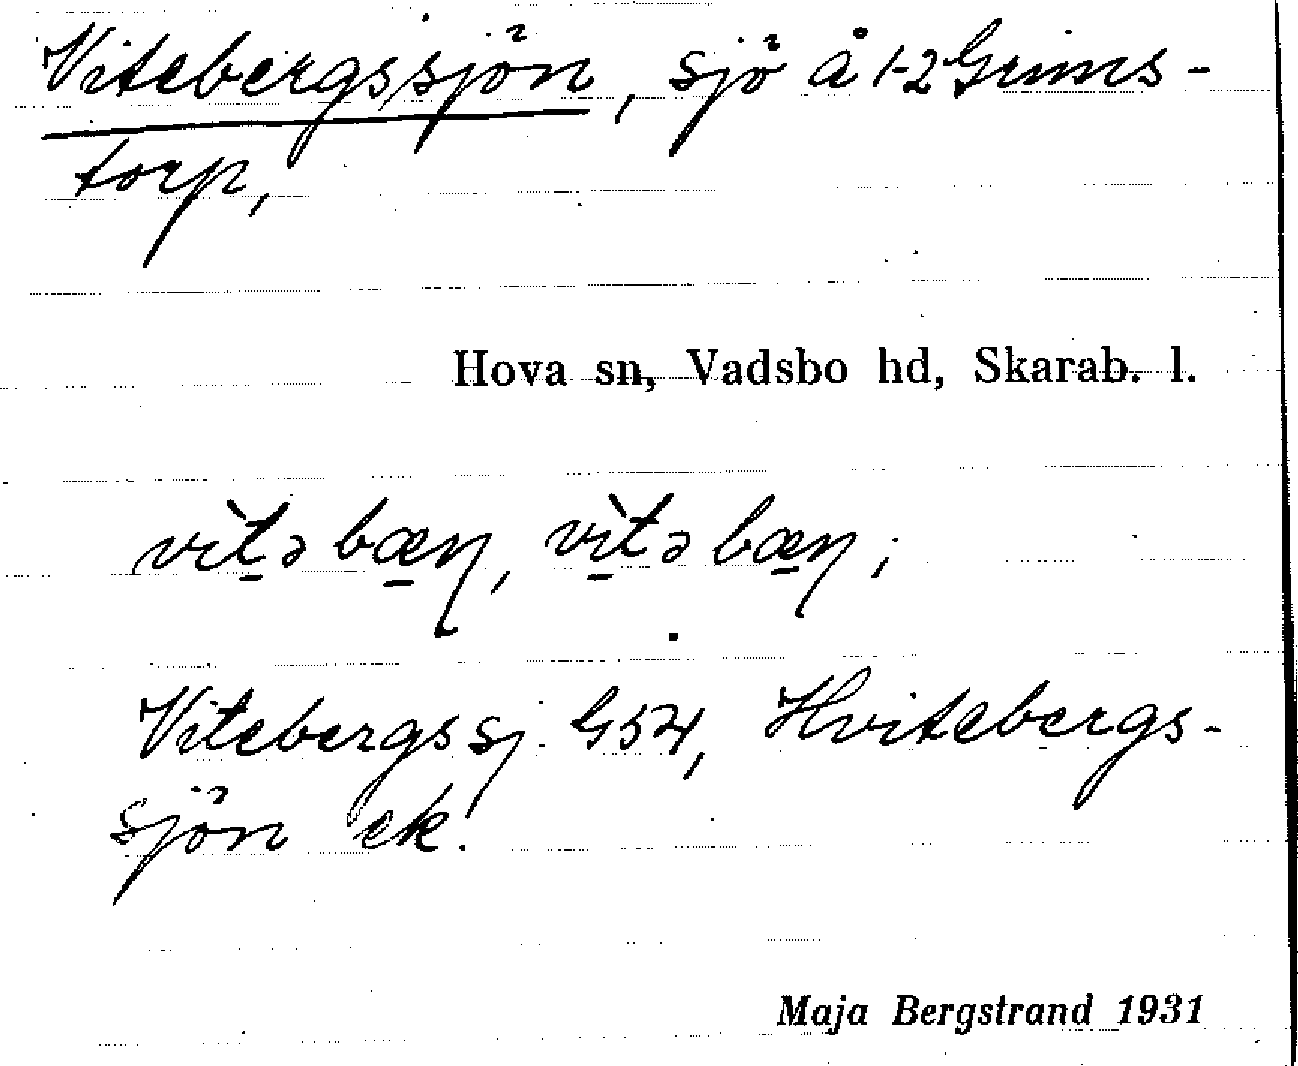 Vitebergssjön, sjö å 1-2 Grims-
torp,
Hova sn, Vadsbo hd, Skarab. l.
vìtə bæŋ, vìtə bæŋ;
Vitebergssj. G54, Hvitebergs-
sjön ek.
Maja Bergstrand 1931